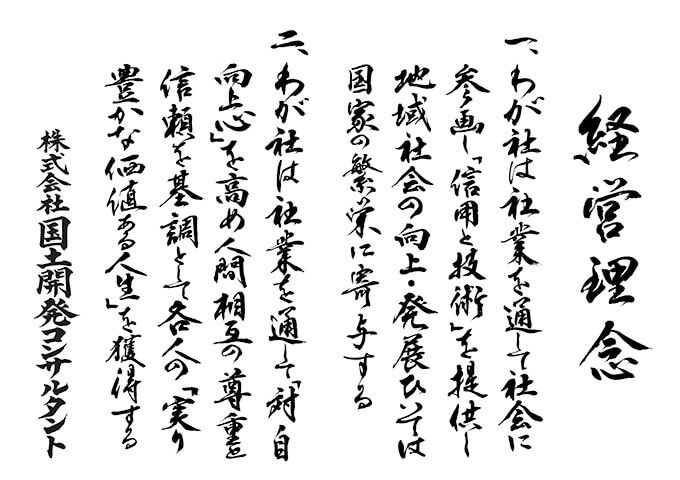 経営理念
一、わが社は社業を通して社会に
参画し「信用と技術」を提供し
地域社会の向上・発展ひいては
国家の繁栄に寄与する
二、わが社は社業を通して「対自
向上心」を高め人間相互の尊重と
信頼を基調として各人の「実り
豊かな価値ある人生」を獲得する
株式会社国土開発コンサルタント